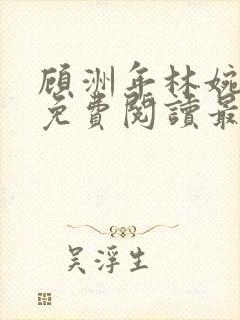 顧洲年林婉
免費閱讀最
吳浮生